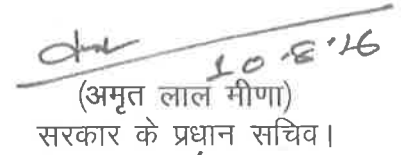 10.8.16
(अमृत लाल मीणा)
सरकार के प्रधान सचिव।